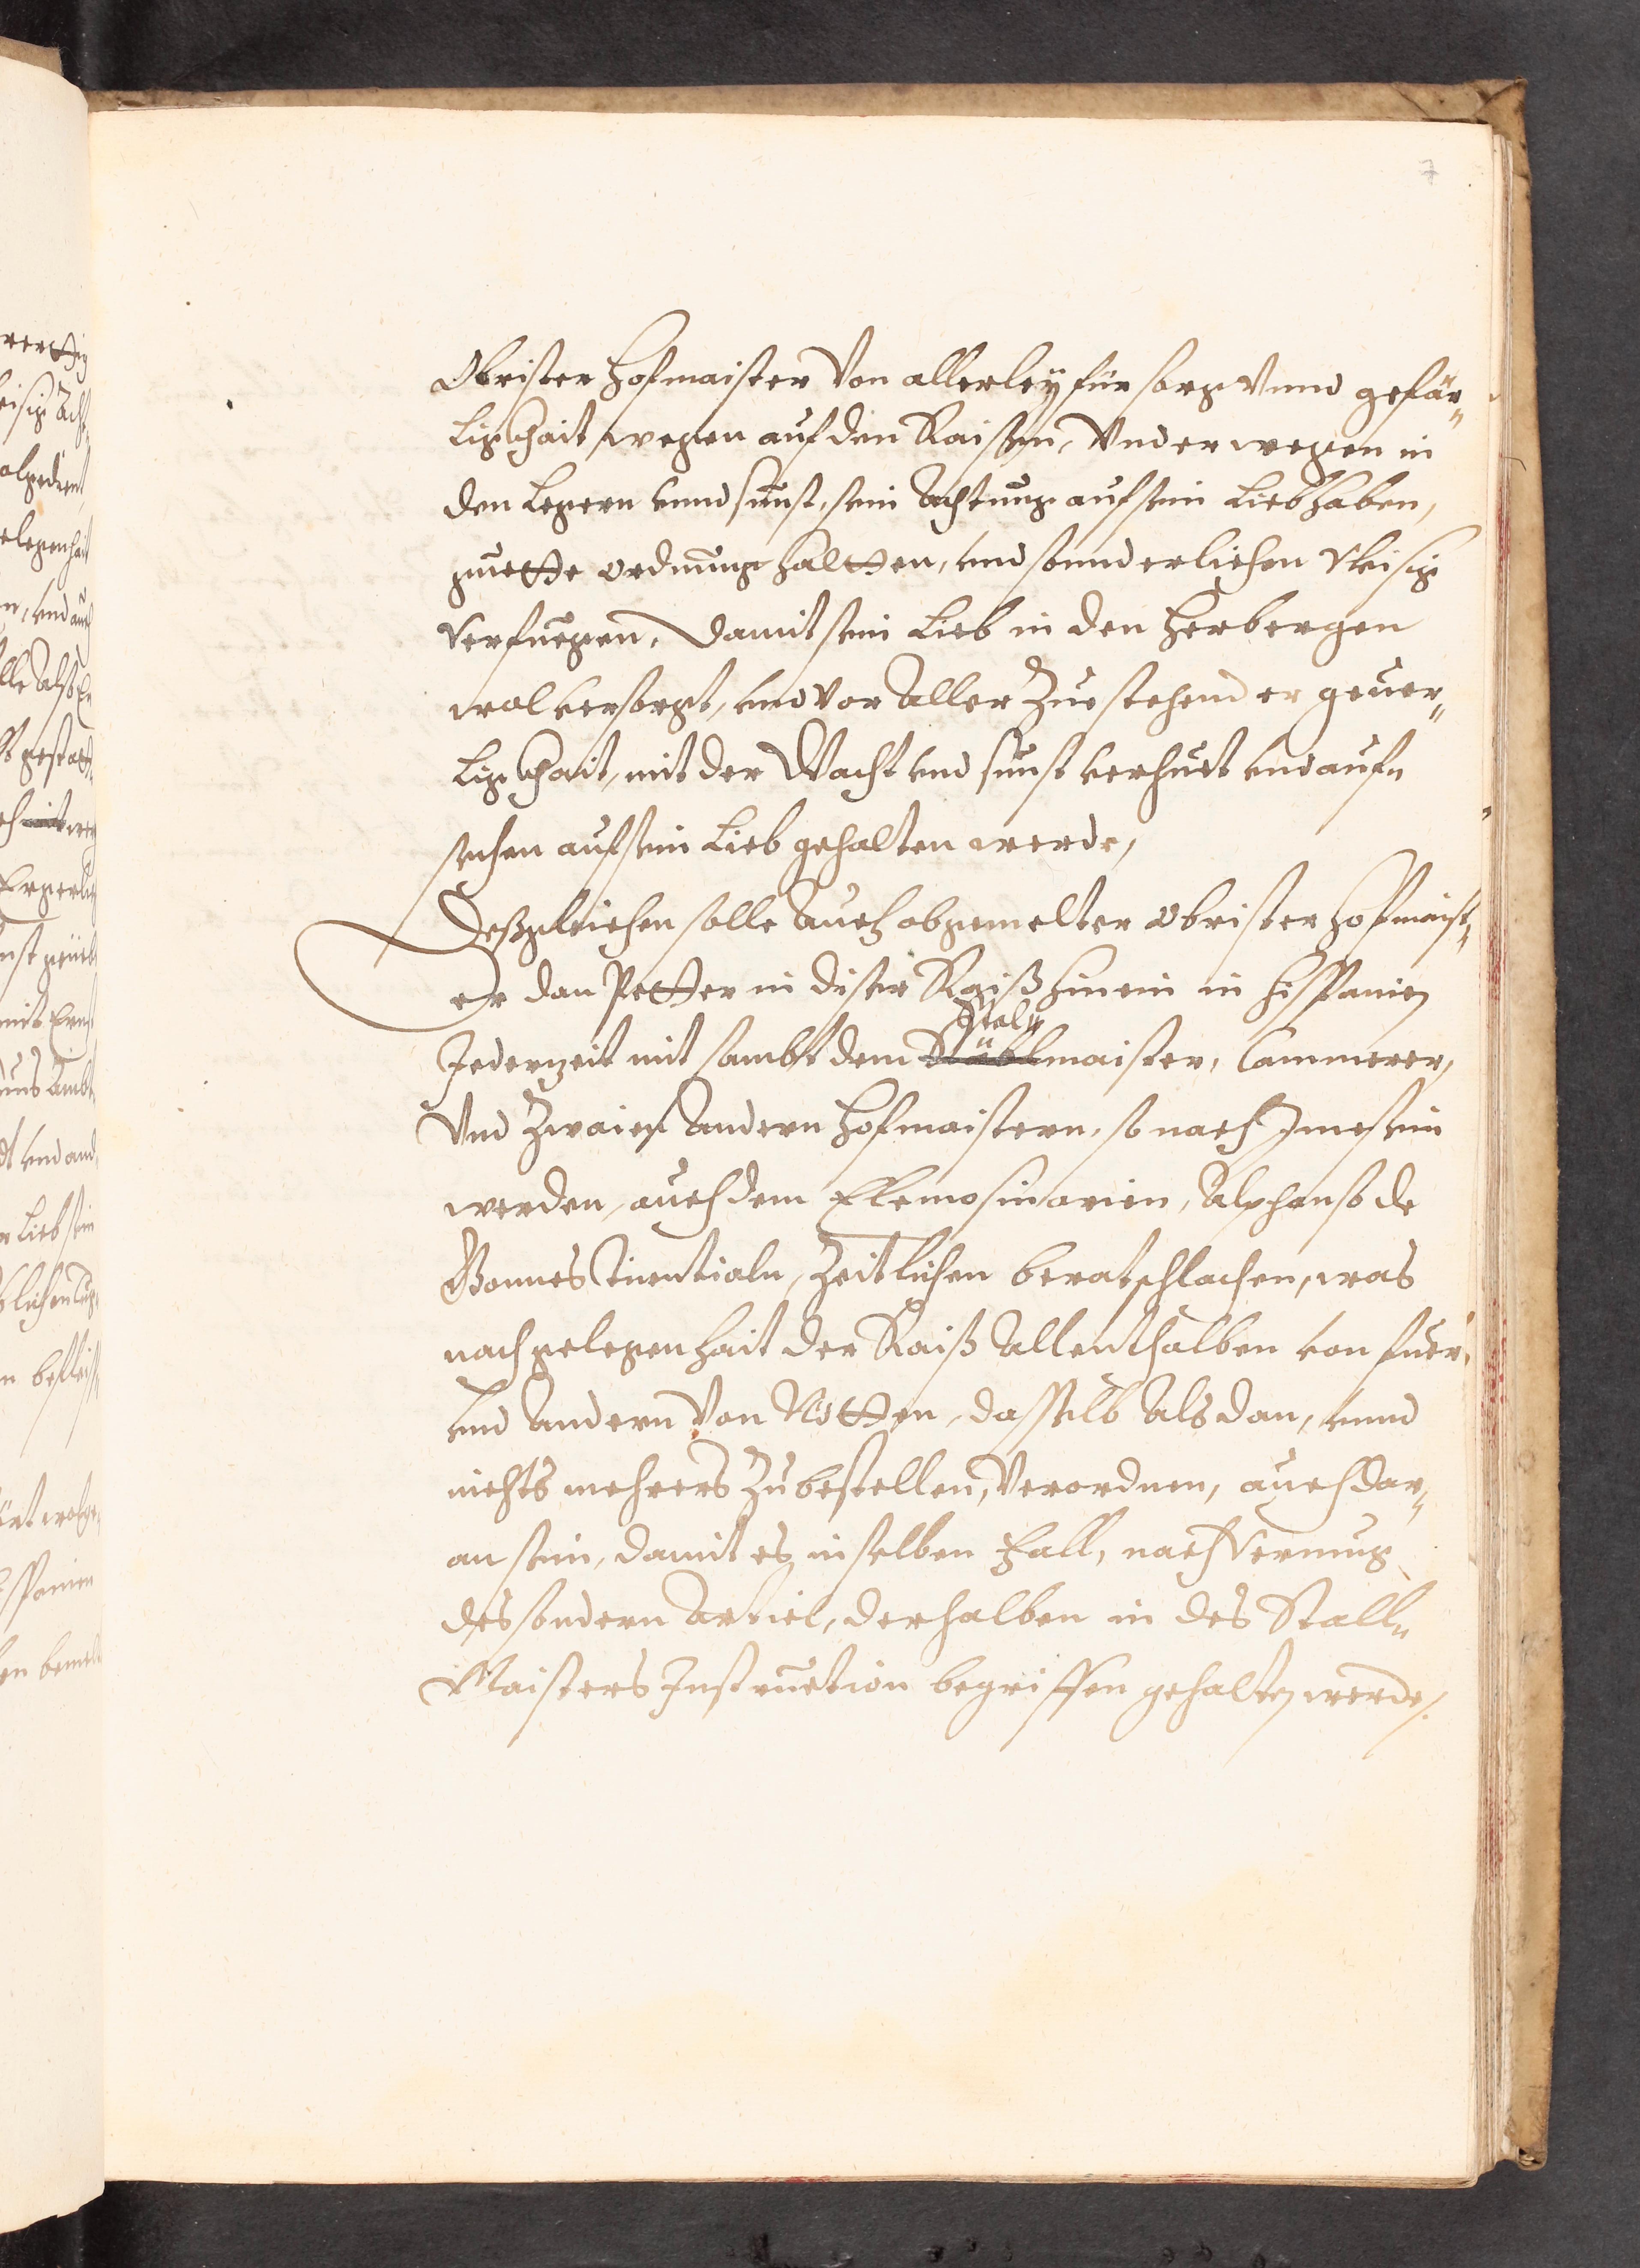 7
Obrister Hofmaister Von allerley fürsorg Vnnd gefär„
ligkhait wegen auf den Raisen, Vnderwegen in
den Legern vnnd sunst, sein Achtung auf sein Lieb haben,
guette ordnung haltten, vnd sonnderlichen vleisig
Verfuegen, damit sein Lieb in den Herbergen
wol versorgt, vnd vor Aller Zuestehender geuer„
ligkhait, mit der Wacht vnd sunst verhuet vnd auf„
sechen auf sein Lieb gehalten werde,
Deßgleichen solle Auch obgemelter obrister hofmaist„
er dan Petter in diser Raiß hinein in hispanien
Stal„
Jederzeit mit sambt dem Stäblmaister, Cammerer,
Vnd Zwaien Andern Hofmaistern, so nach Jme sein
werden, auch dem Elemosinarien, Alphonso de
Zeitlichen beratschlachen, was
nach gelegenhait der Raiß Allenthalben von fuer„
vnd Andern Von Notten, dasselb Alsdan, vnnd
nichts mehrers Zubestellen, Verordnen, auch dar„
an sein, damit es in selben Fall, nach Vermug
des sondern Articl, derhalben in des Stall„
Maisters Instruction begriffen gehalten werde.